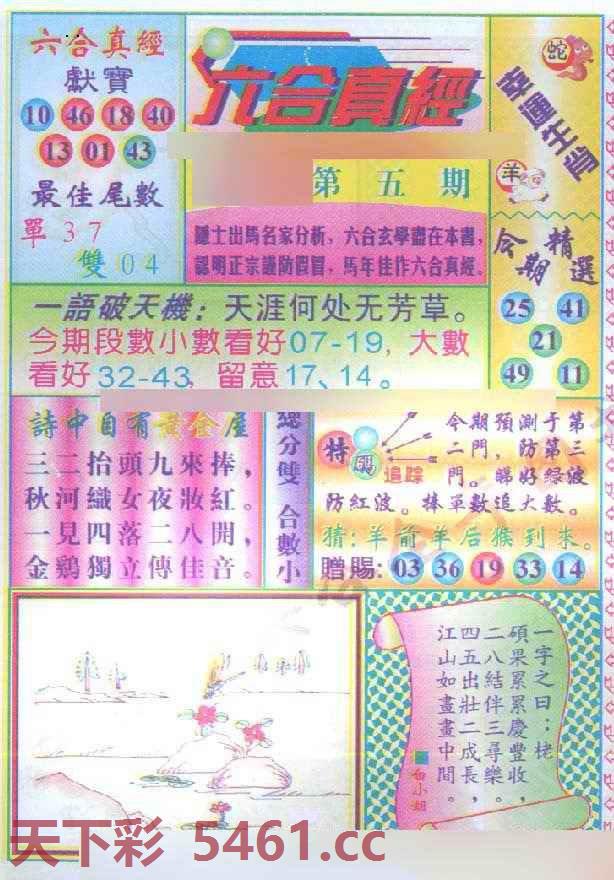 六合真經
獻寶
10 46 18 40
13 01 43
最佳尾數
單 37
雙 04
六合真經
第五期
隱士出馬名家分析，六合玄學盡在本書，
認明正宗謹防假冒，馬年佳作六合真經。
幸運生肖
蛇
羊
今期精選
25 41
21
49 11
一語破天機：天涯何处无芳草。
今期段數小數看好07-19，大數
看好32-43，留意17、14。
詩中自有黃金屋
三二抬頭九來捧，
秋河織女夜妝紅。
一見四落二八開，
金鷄獨立傳佳音。
總分雙 合數小
特碼追踪
今期預測于第
二門，防第三
門。睇好绿波
防紅波。捧單數追大數。
猜：羊前羊后猴到来。
贈賜：03 36 19 33 14
一字之曰：栳
碩果累累慶豐收，
二八結伴三尋樂。
四五出壯二成長，
江山如畫畫中間。
白小姐
天下彩 5461.cc